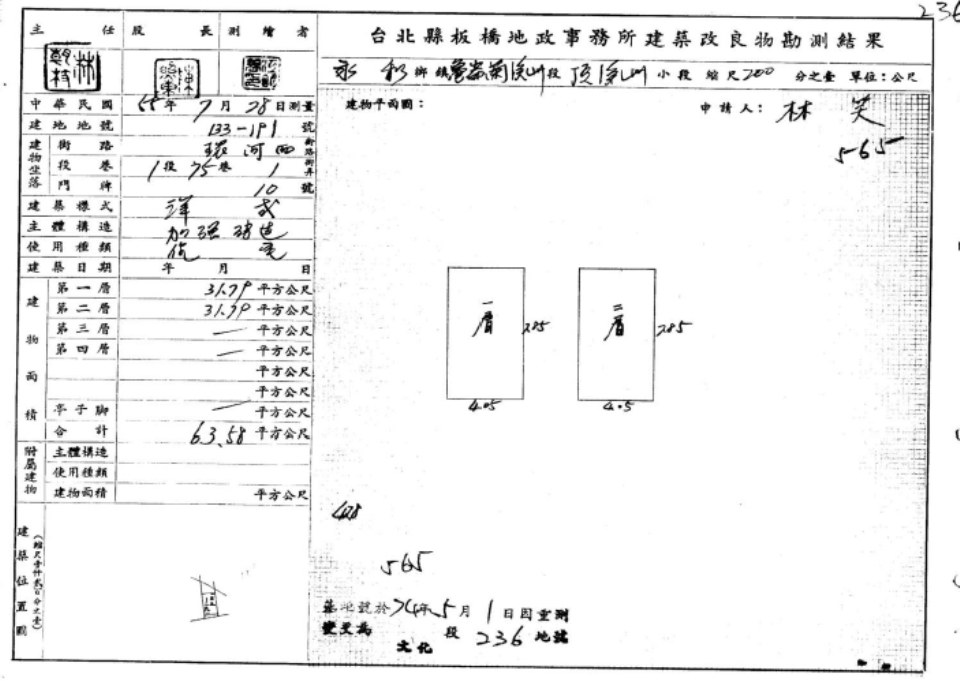 236
台北縣板橋地政事務所建築改良物勘測結果
主任 股長 測繪者
永和鄉鎮 段 頂溪洲小段 縮尺200分之壹 單位：公尺
中華民國55年7月28日測量
建物平面圖：
申請人：林笑
565
建地地號 133-191號
建物坐落
街路 環河西 街路
段巷 1段75巷1弄
門牌 10號
建築樣式 洋式
主體構造 加強磚造
使用種類 住宅
建築日期 年 月 日
建物面積
第一層 31.79平方公尺
第二層 31.79平方公尺
第三層 — 平方公尺
第四層 — 平方公尺
平方公尺
平方公尺
亭子腳 — 平方公尺
合計 63.58平方公尺
附屬建物
主體構造
使用種類
建物面積 平方公尺
一層 7.85 4.05
二層 7.85 4.05
建築位置圖
（縮尺壹仟貳百分之壹）
565
基地號於74年5月1日因重測
變更為 文化段236地號